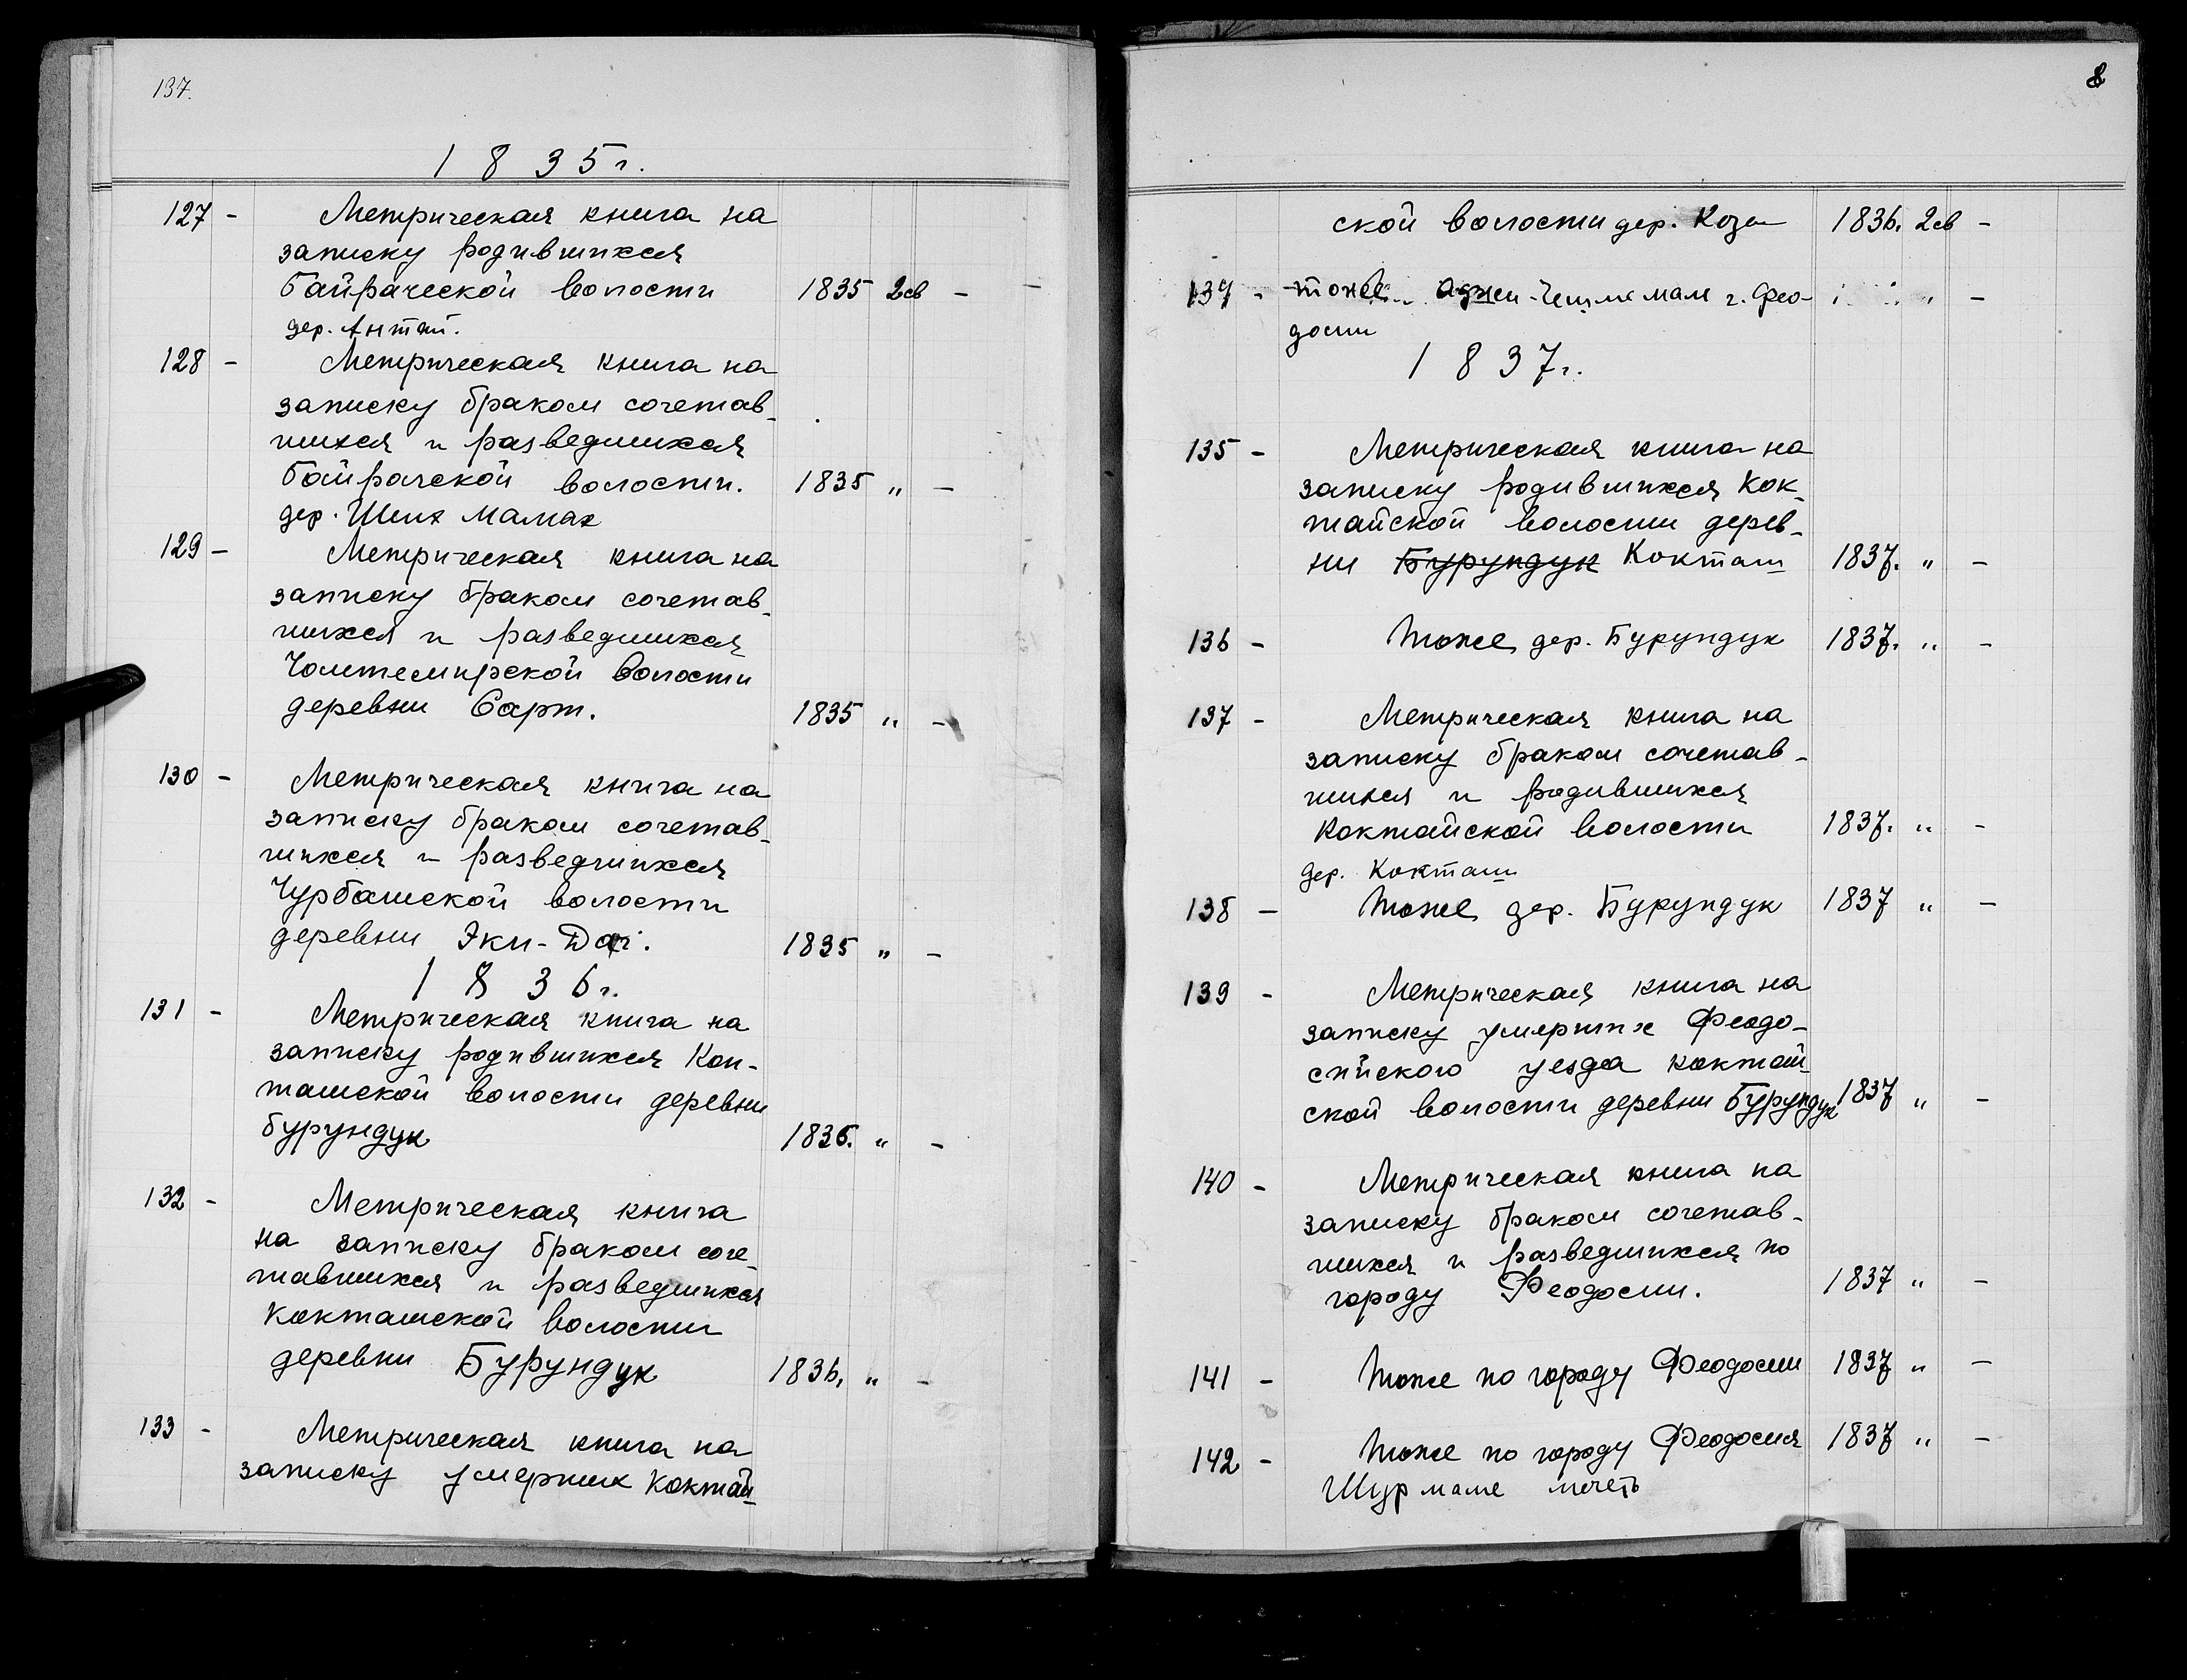 137.
1835г.
127 - Метрическая книга на
записку родившихся
Байрачской волости 1835 2св -
дер. Антай.
128 - Метрическая книга на
записку браком сочетав-
шихся и разведшихся
Байрачской волости. 1835 „ -
дер. Шейх Мамах
129 - Метрическая книга на
записку браком сочетав-
шихся и разведшихся
Чомтемирской волости
деревни Сарт. 1835 „ -
130 - Метрическая книга на
записку браком сочетав-
шихся и разведшихся
Чурбашской волости
деревни Эки-Даг. 1835 „ -
1836г.
131 - Метрическая книга на
записку родившихся Кок-
ташской волости деревни
Бурундук 1836. „ -
132 - Метрическая книга
на записку браком соче-
тавшихся и разведшихся
Кокташской волости
деревни Бурундук 1836, „ -
133 - Метрическая книга на
записку умерших Коктай-
8
ской волости дер. Кози 1836. 2св -
134 - тоже Аджи-Чешме мам г. Фео- „ „ -
досии
1837г.
135 - Метрическая книга на
записку родившихся Кок-
тайской волости дерев-
ни Бурундук Кокташ 1837. „ -
136 - тоже дер. Бурундук 1837. „ -
137 - Метрическая книга на
записку браком сочетав-
шихся и родившихся
Коктайской волости 1837. „ -
дер. Кокташ
138 - тоже дер. Бурундук 1837 „ -
139 - Метрическая книга на
записку умерших Феодо-
сийского уезда Коктай-
ской волости деревни Бурундук 1837 „ -
140 - Метрическая книга на
записку браком сочетав-
шихся и разведшихся по
городу Феодосии. 1837 „ -
141 - тоже по городу Феодосии 1837 „ -
142 - тоже по городу Феодосия 1837 „ -
Шур маме мечеть